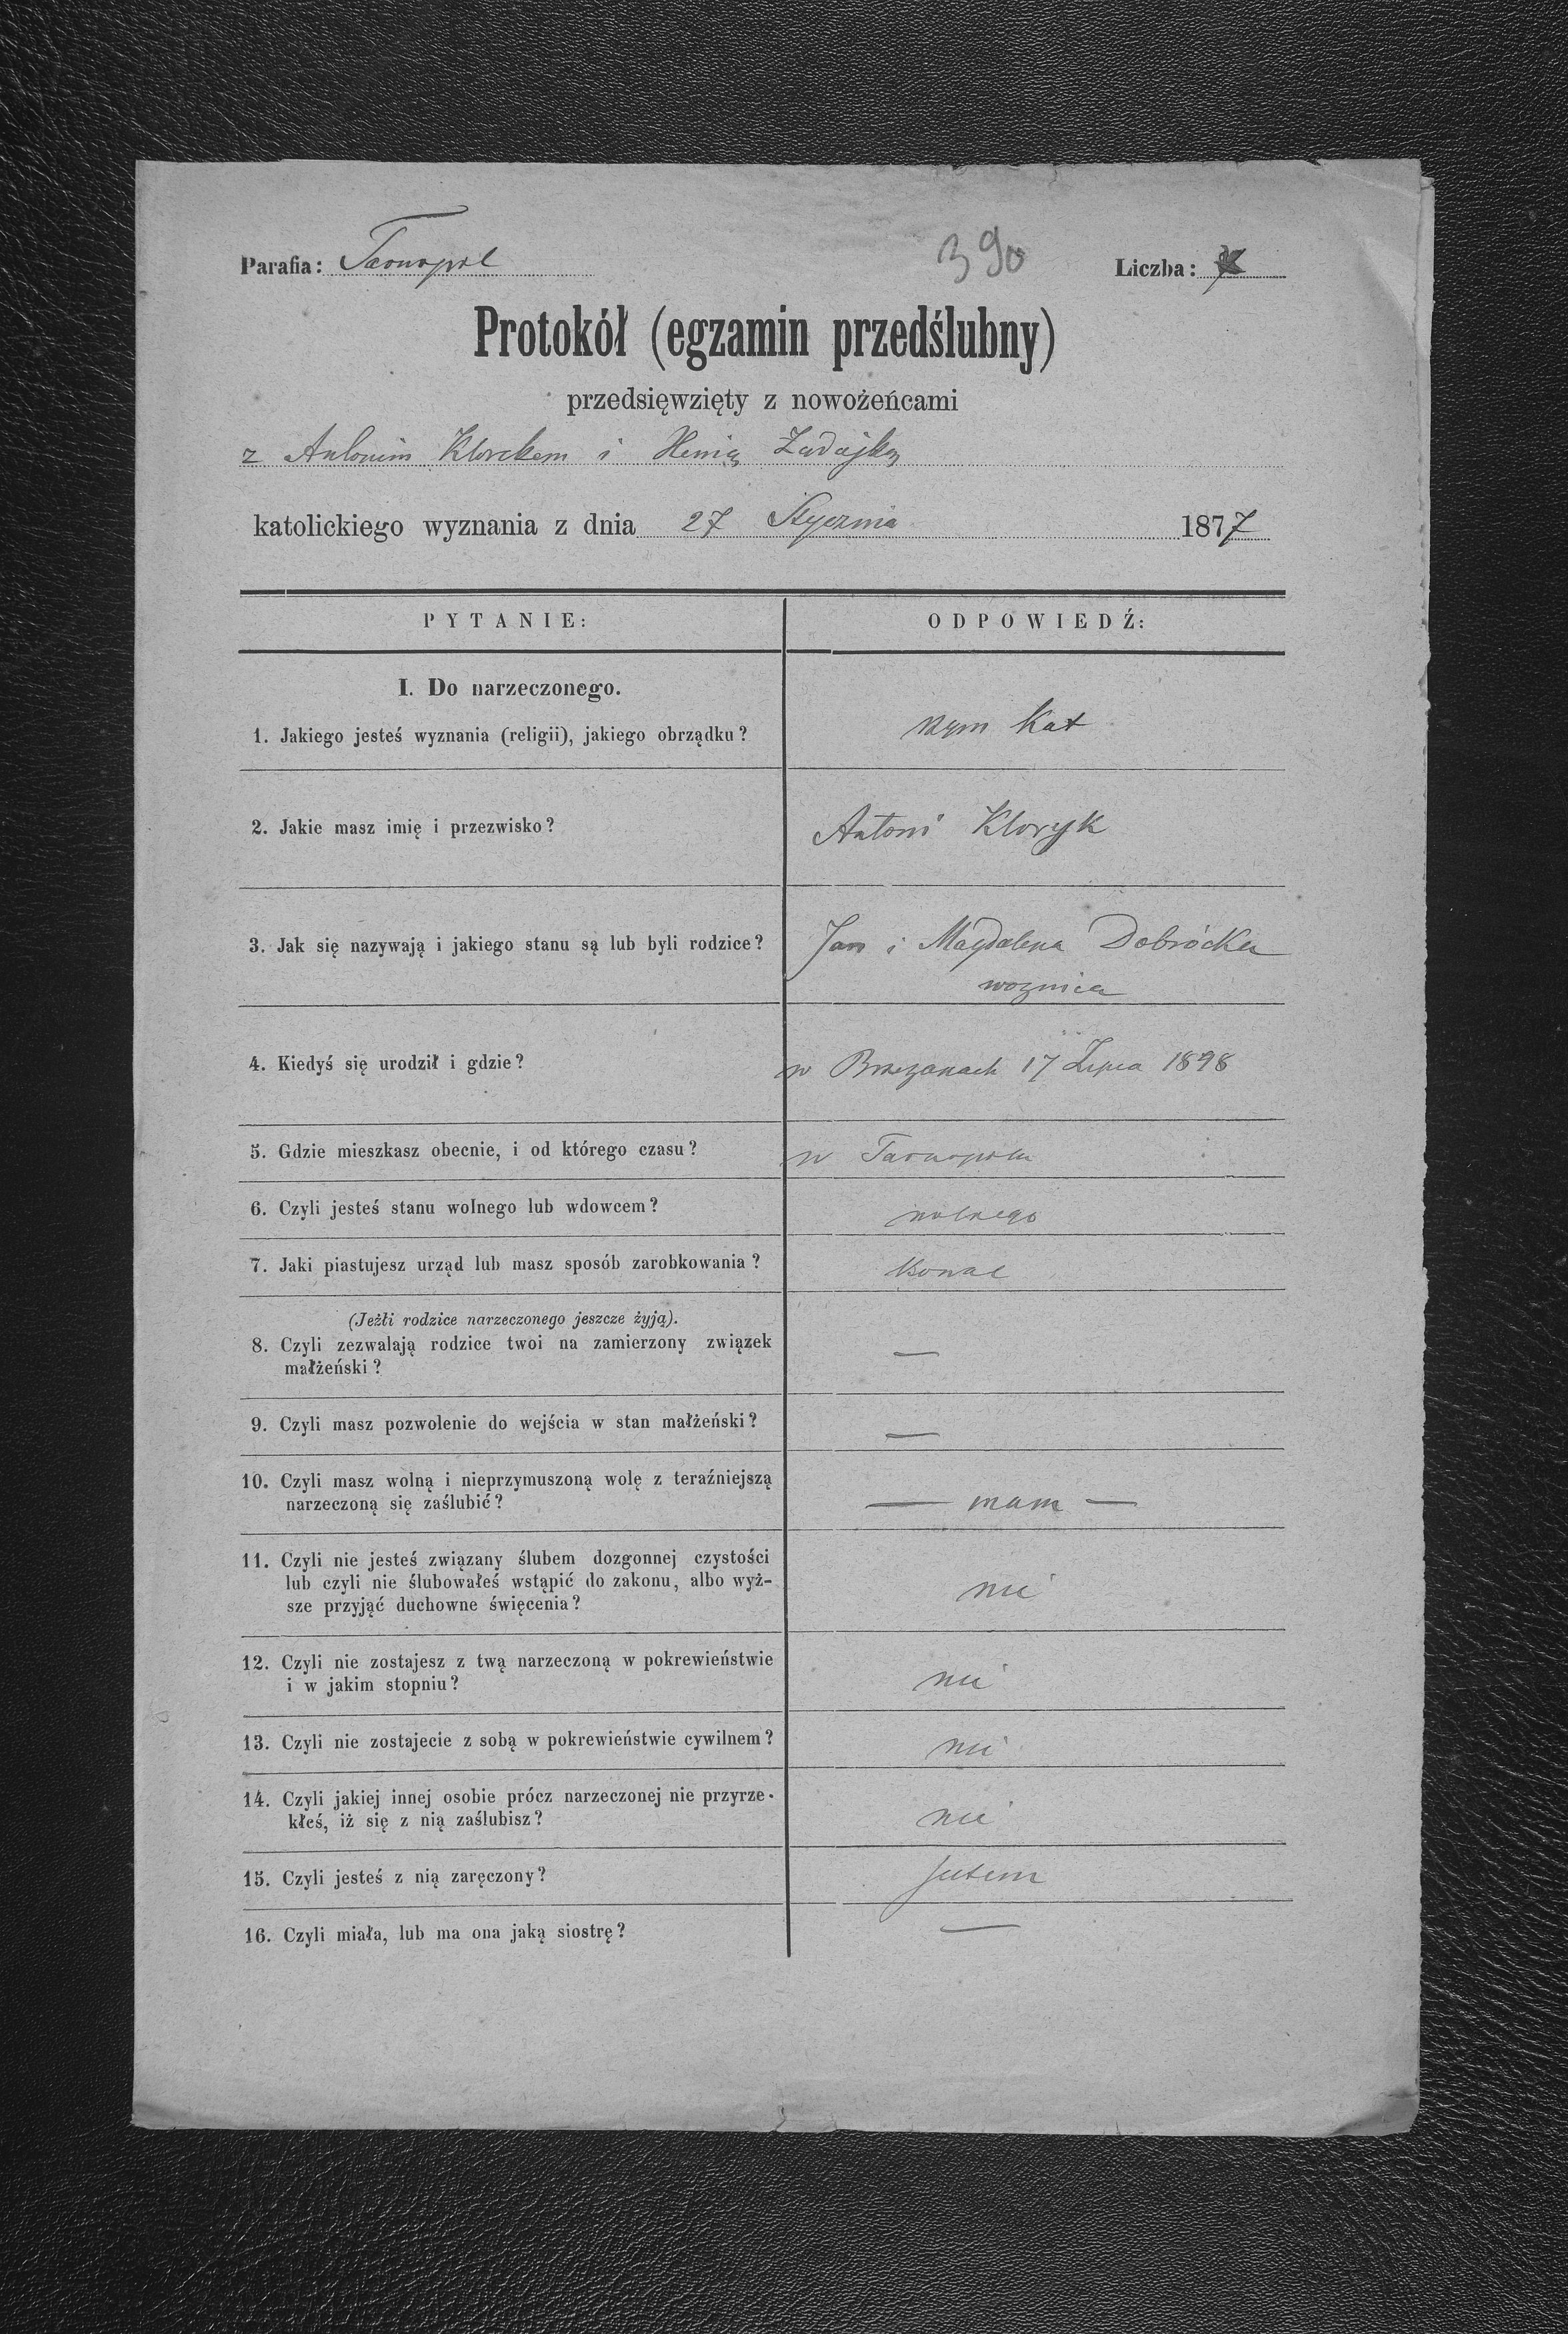 Parafia: Tarnopol
390
Liczba:
Protokół (egzamin przedślubny)
przedsięwzięty z nowożeńcami
z Antonim Klorekem i Henią Zadajką
katolickiego wyznania z dnia 27 Stycznia 1877
PYTANIE:
ODPOWIEDŹ:
I. Do narzeczonego.
1. Jakiego jesteś wyznania (religii), jakiego obrządku?
rzym Kat
2. Jakie masz imię i przezwisko?
Antoni Kloryk
3. Jak się nazywają i jakiego stanu są lub byli rodzice?
Jan i Magdalena Dobrócka
woznica
4. Kiedyś się urodził i gdzie?
w Brzeżanach 17 Lipca 1898
5. Gdzie mieszkasz obecnie, i od którego czasu?
w Tarnopolu
6. Czyli jesteś stanu wolnego lub wdowcem?
wolnego
7. Jaki piastujesz urząd lub masz sposób zarobkowania?
Kowal
(Jeźli rodzice narzeczonego jeszcze żyją).
8. Czyli zezwalają rodzice twoi na zamierzony związek
małżeński?
—
9. Czyli masz pozwolenie do wejścia w stan małżeński?
—
10. Czyli masz wolną i nieprzymuszoną wolę z teraźniejszą
narzeczoną się zaślubić?
— mam —
11. Czyli nie jesteś związany ślubem dozgonnej czystości
lub czyli nie ślubowałeś wstąpić do zakonu, albo wyż-
sze przyjąć duchowne święcenia?
nie
12. Czyli nie zostajesz z twą narzeczoną w pokrewieństwie
i w jakim stopniu?
nie
13. Czyli nie zostajecie z sobą w pokrewieństwie cywilnem?
nie
14. Czyli jakiej innej osobie prócz narzeczonej nie przyrze-
kłeś, iż się z nią zaślubisz?
nie
15. Czyli jesteś z nią zaręczony?
jestem
16. Czyli miała, lub ma ona jaką siostrę?
—